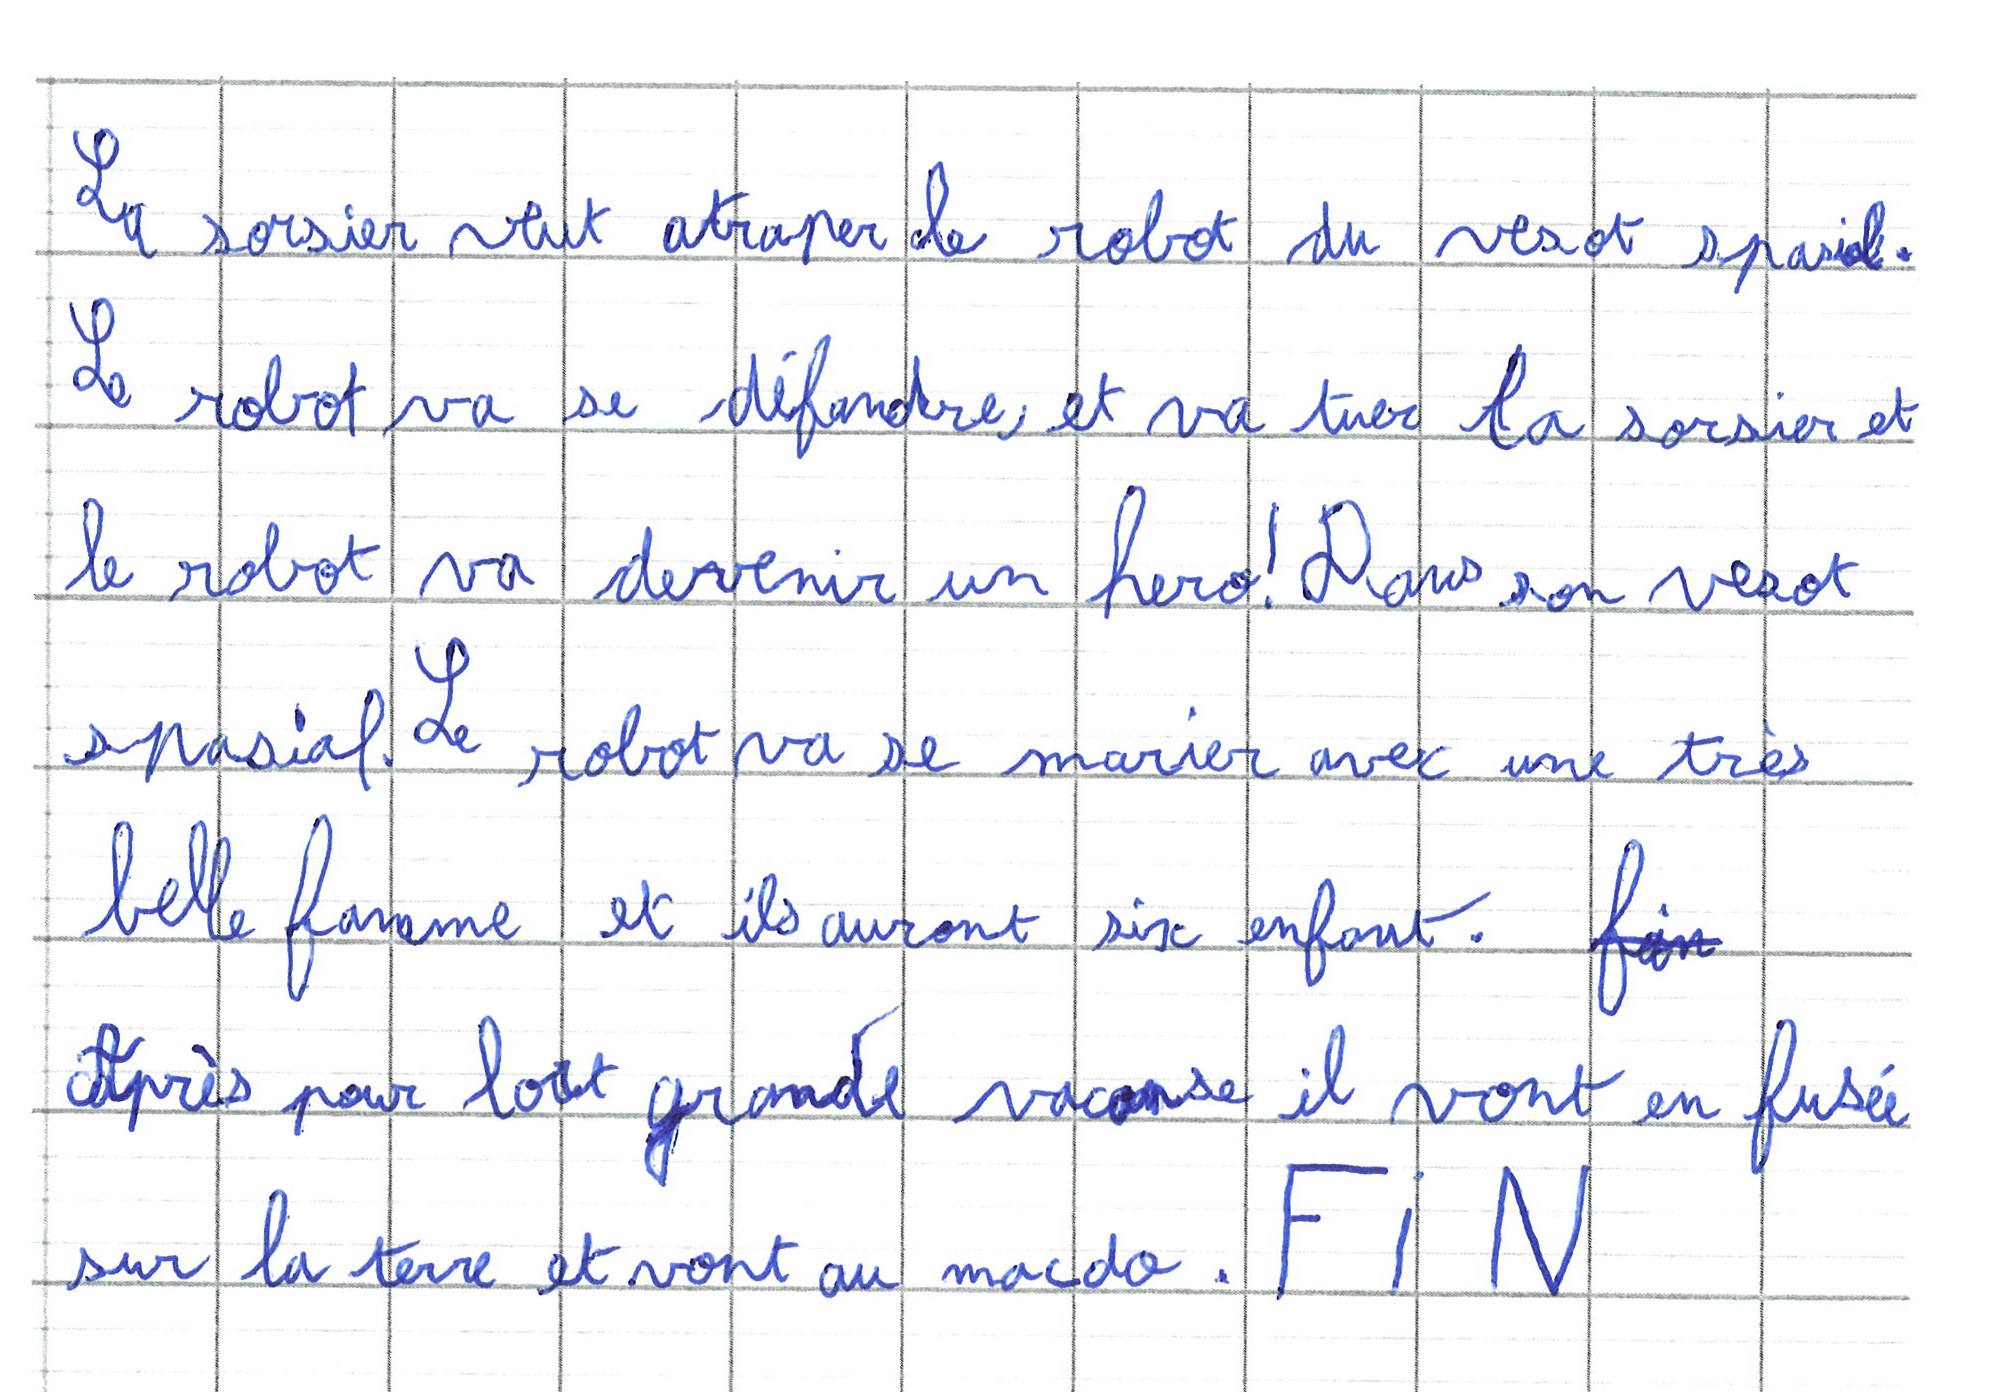 La sorsier veut atraper le robot du vesot spasial.
Le robot va se défandre, et va tuer la sorsier et
le robot va devenir un hero! Dans son vesot
spasial. Le robot va se marier avec une très
belle famme et ils auront six enfant. fin
Après pour lort grande vacanse il vont en fusée
sur la terre et vont au macdo. FiN